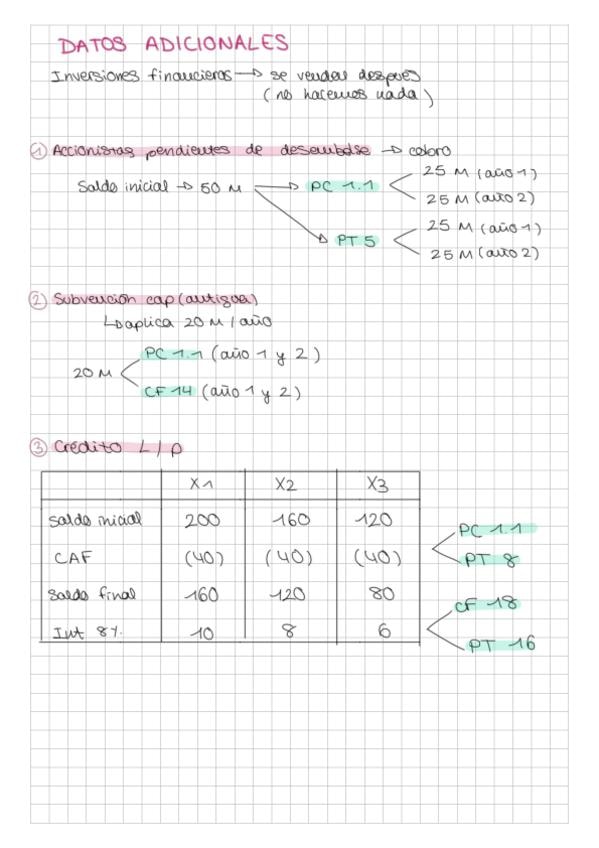 DATOS ADICIONALES
Inversiones financieras → se venden después
(no hacemos nada)
1 Accionistas pendientes de desembolso → cobro
Saldo inicial → 50 M → PC 1.1 < 25 M (año 1)
25 M (año 2)
PT 5 < 25 M (año 1)
25 M (año 2)
2 Subvención cap (antigua)
↳ aplica 20 M / año
20 M < PC 1.1 (año 1 y 2)
CF 14 (año 1 y 2)
3 Crédito L / p
X1 X2 X3
Saldo inicial 200 160 120
CAF (40) (40) (40) < PC 1.1
PT 8
Saldo final 160 120 80
Int 8% 10 8 6 < CF 18
PT 16